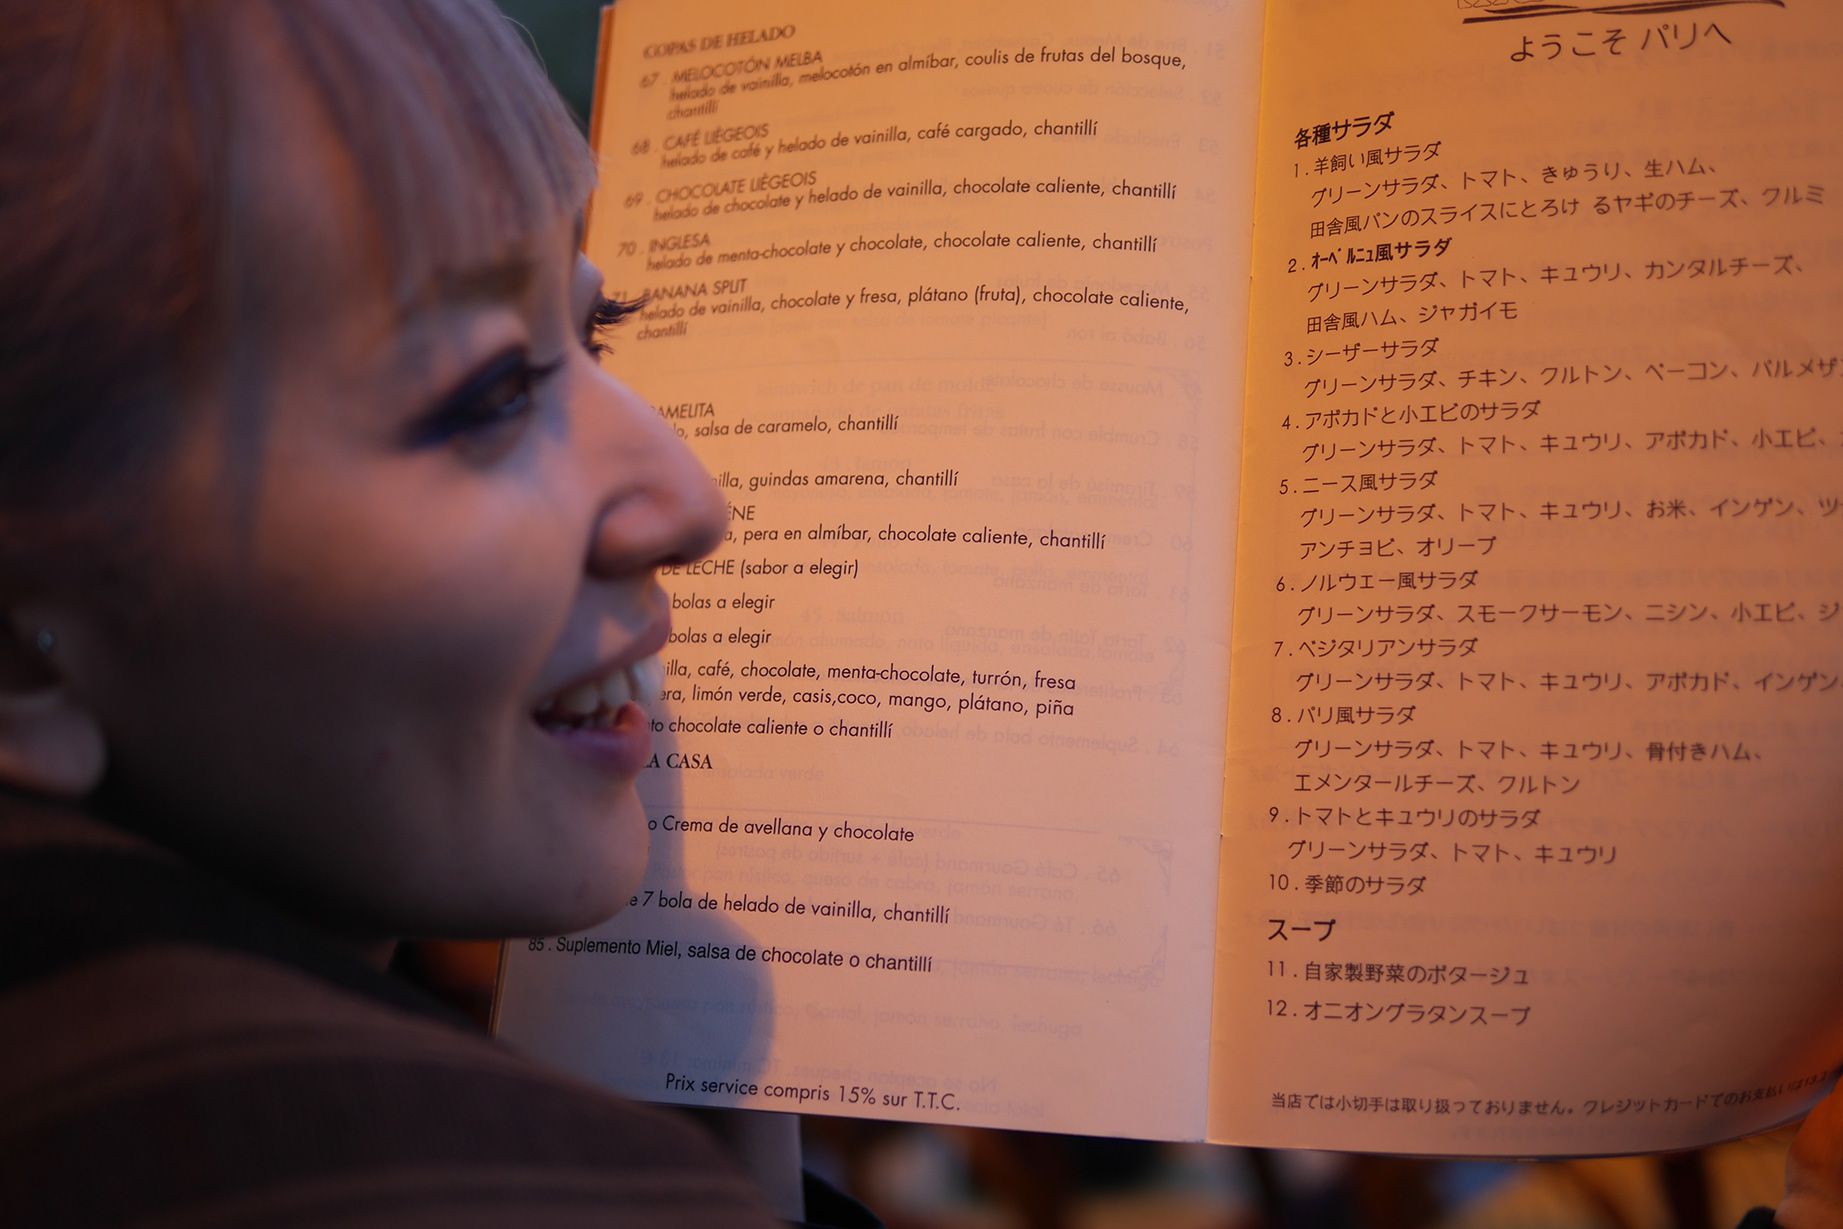 COPAS DE HELADO
67 . MELOCOTÓN MELBA
helado de vainilla, melocotón en almíbar, coulis de frutas del bosque,
chantillí
68 . CAFÉ LIÉGEOIS
helado de café y helado de vainilla, café cargado, chantillí
69 . CHOCOLATE LIÈGEOIS
helado de chocolate y helado de vainilla, chocolate caliente, chantillí
70 . INGLESA
helado de menta-chocolate y chocolate, chocolate caliente, chantillí
71 . BANANA SPLIT
helado de vainilla, chocolate y fresa, plátano (fruta), chocolate caliente,
chantillí
salsa de caramelo, chantillí
guindas amarena, chantillí
pera en almíbar, chocolate caliente, chantillí
DE LECHE (sabor a elegir)
bolas a elegir
bolas a elegir
café, chocolate, menta-chocolate, turrón, fresa
limón verde, casis,coco, mango, plátano, piña
chocolate caliente o chantillí
LA CASA
o Crema de avellana y chocolate
7 bola de helado de vainilla, chantillí
85 . Suplemento Miel, salsa de chocolate o chantillí
Prix service compris 15% sur T.T.C.
ようこそ パリへ
各種サラダ
1 . 羊飼い風サラダ
グリーンサラダ、トマト、きゅうり、生ハム、
田舎風パンのスライスにとろけ るヤギのチーズ、クルミ
2 . オーベルニュ風サラダ
グリーンサラダ、トマト、キュウリ、カンタルチーズ、
田舎風ハム、ジャガイモ
3 . シーザーサラダ
グリーンサラダ、チキン、クルトン、ベーコン、パルメザ
4 . アボカドと小エビのサラダ
グリーンサラダ、トマト、キュウリ、アボカド、小エビ、
5 . ニース風サラダ
グリーンサラダ、トマト、キュウリ、お米、インゲン、ツ
アンチョビ、オリーブ
6 . ノルウェー風サラダ
グリーンサラダ、スモークサーモン、ニシン、小エビ、ジ
7 . ベジタリアンサラダ
グリーンサラダ、トマト、キュウリ、アボカド、インゲン
8 . パリ風サラダ
グリーンサラダ、トマト、キュウリ、骨付きハム、
エメンタールチーズ、クルトン
9 . トマトとキュウリのサラダ
グリーンサラダ、トマト、キュウリ
10 . 季節のサラダ
スープ
11 . 自家製野菜のポタージュ
12 . オニオングラタンスープ
当店では小切手は取り扱っておりません。クレジットカードでのお支払いは